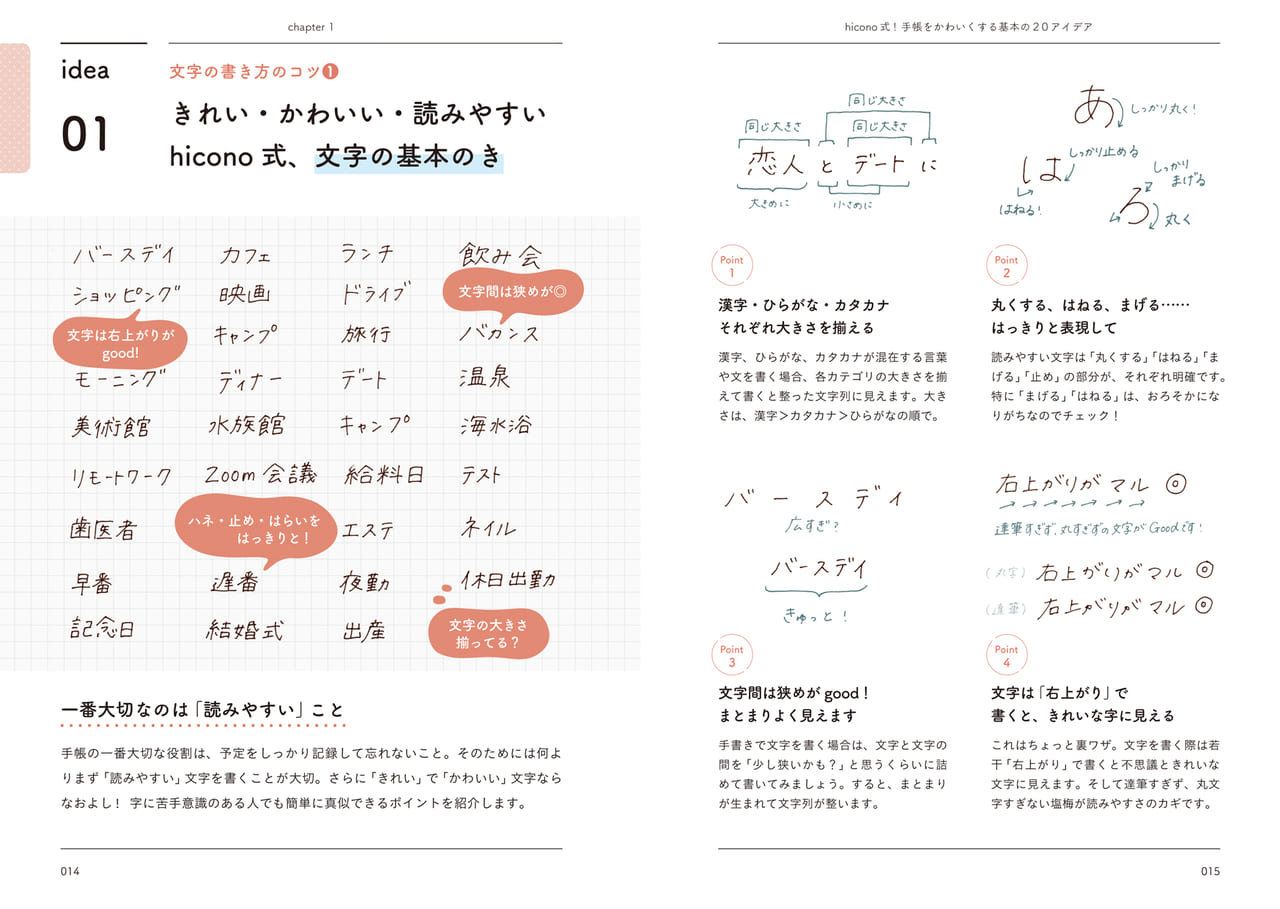 chapter 1
idea
01
文字の書き方のコツ❶
きれい・かわいい・読みやすい
hicono 式、文字の基本のき
バースデイ カフェ ランチ 飲み会
文字間は狭めが◎
ショッピング 映画 ドライブ
文字は右上がりが
good!
キャンプ 旅行 バカンス
モーニング ディナー デート 温泉
美術館 水族館 キャンプ 海水浴
リモートワーク Zoom会議 給料日 テスト
ハネ・止め・はらいを
はっきりと!
歯医者 エステ ネイル
早番 遅番 夜勤 休日出勤
文字の大きさ
揃ってる?
記念日 結婚式 出産
一番大切なのは「読みやすい」こと
手帳の一番大切な役割は、予定をしっかり記録して忘れないこと。そのためには何よ
りまず「読みやすい」文字を書くことが大切。さらに「きれい」で「かわいい」文字なら
なおよし! 字に苦手意識のある人でも簡単に真似できるポイントを紹介します。
014
hicono 式!手帳をかわいくする基本の20アイデア
同じ大きさ
同じ大きさ 同じ大きさ
恋人とデートに
大きめに 小さめに
Point
1
漢字・ひらがな・カタカナ
それぞれ大きさを揃える
漢字、ひらがな、カタカナが混在する言葉
や文を書く場合、各カテゴリの大きさを揃
えて書くと整った文字列に見えます。大き
さは、漢字>カタカナ>ひらがなの順で。
あ しっかり丸く!
は しっかり止める
はねる!
しっかり
まげる
ろ 丸く
Point
2
丸くする、はねる、まげる……
はっきりと表現して
読みやすい文字は「丸くする」「はねる」「ま
げる」「止め」の部分が、それぞれ明確です。
特に「まげる」「はねる」は、おろそかにな
りがちなのでチェック!
バースデイ
広すぎ?
バースデイ
きゅっと!
Point
3
文字間は狭めが good!
まとまりよく見えます
手書きで文字を書く場合は、文字と文字の
間を「少し狭いかも?」と思うくらいに詰
めて書いてみましょう。すると、まとまり
が生まれて文字列が整います。
右上がりがマル ◎
→ → → → → → →
達筆すぎず、丸すぎずの文字がGoodです!
(丸字) 右上がりがマル ◎
(達筆) 右上がりがマル ◎
Point
4
文字は「右上がり」で
書くと、きれいな字に見える
これはちょっと裏ワザ。文字を書く際は若
干「右上がり」で書くと不思議ときれいな
文字に見えます。そして達筆すぎず、丸文
字すぎない塩梅が読みやすさのカギです。
015